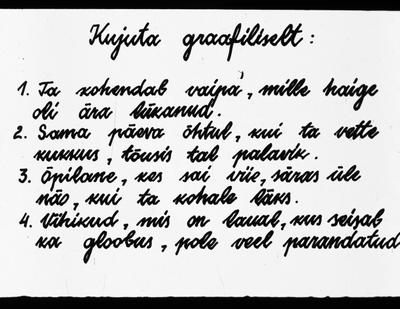 Kujuta graafiliselt:
1. Ta kohendab vaipa, mille haige
oli ära lükanud.
2. Sama päeva õhtul, kui ta vette
kukkus, tõusis tal palavik.
3. Õpilane, kes sai viie, säras üle
näo, kui ta kohale läks.
4. Vihikud, mis on laual, kus seisab
ka gloobus, pole veel parandatud